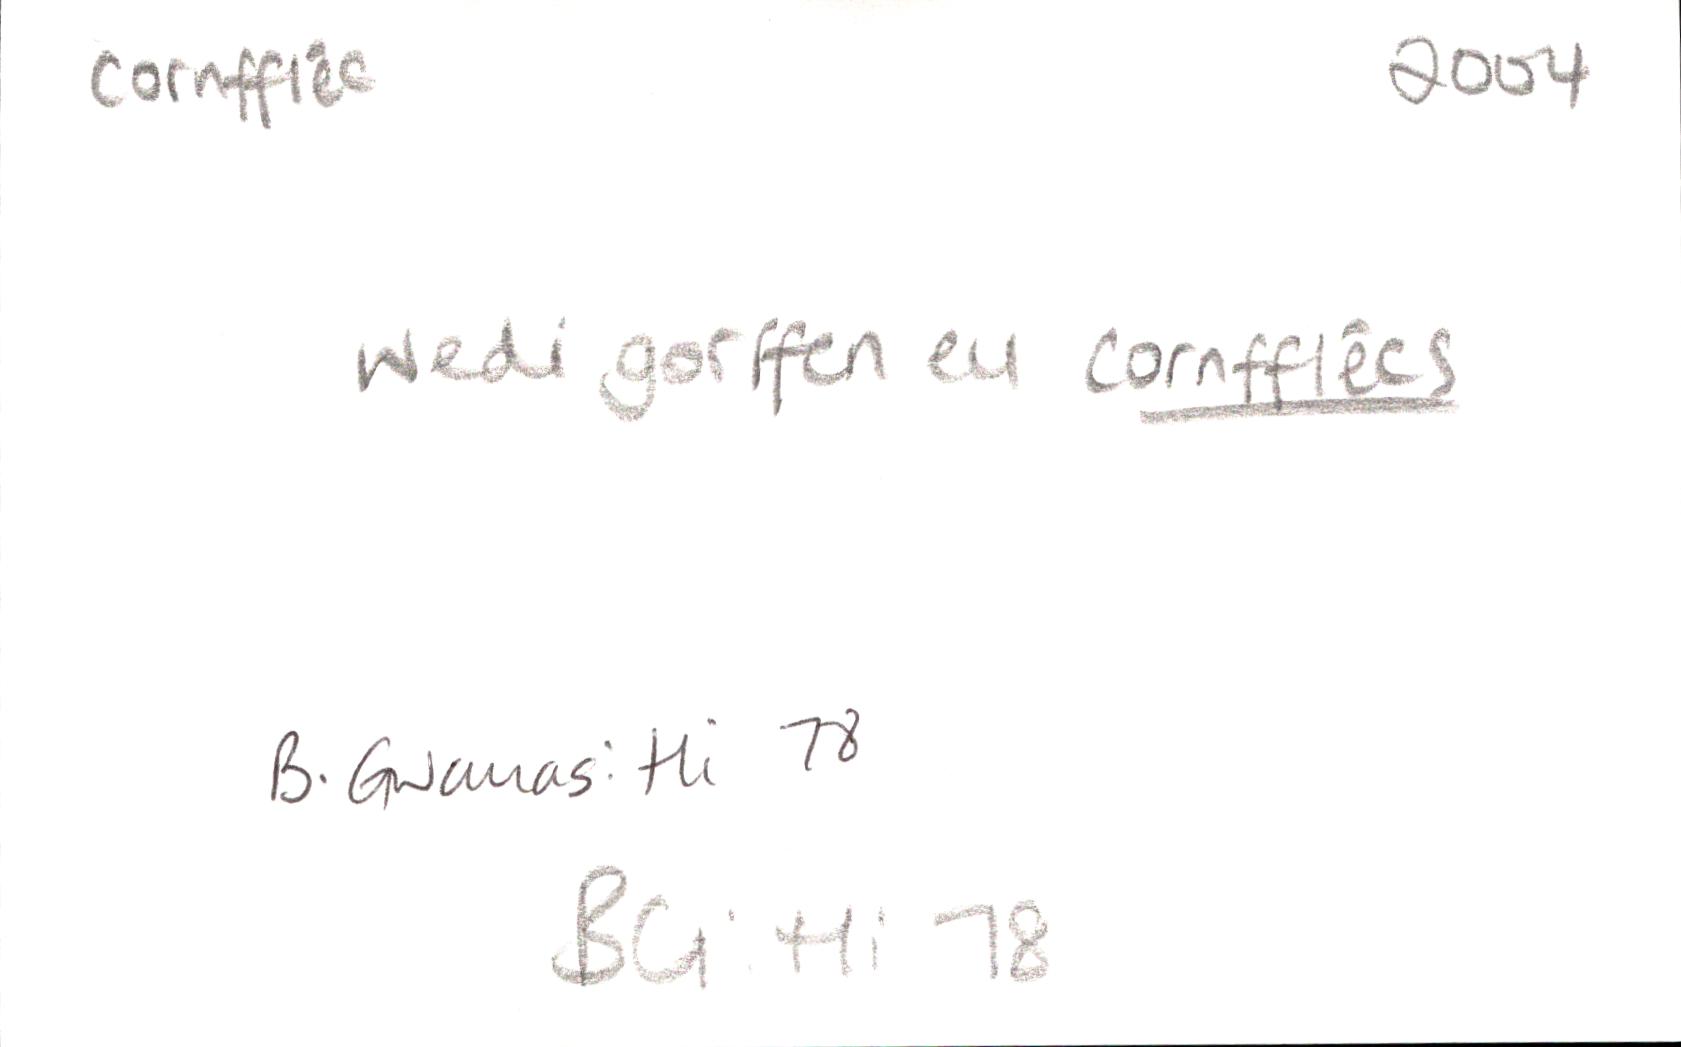 cornfflêc 2004
wedi gorffen eu cornfflêcs
B. Gwanas: Hi 78
BG: Hi 78